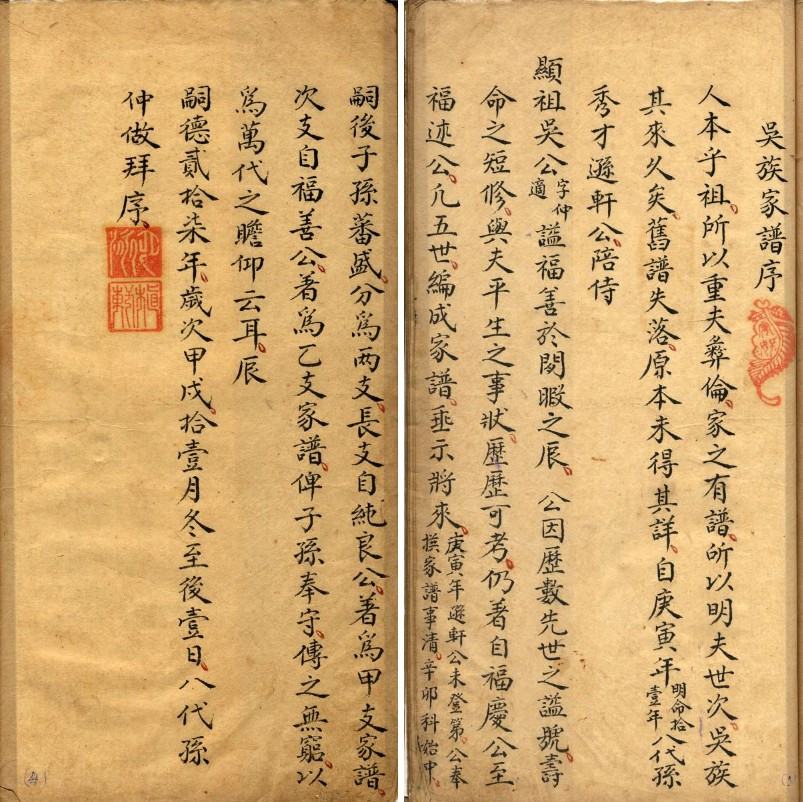 吳族家譜序
人本乎祖所以重夫彝倫家之有譜所以明夫世次吳族
其來久矣舊譜失落原本未得其詳自庚寅年明命拾壹年八代孫
秀才遜軒公陪侍
顯祖吳公字仲適謚福善於閒暇之辰公因歷數先世之謚號壽
命之短修與夫平生之事狀歷歷可考仍著自福慶公至
福迹公凡五世編成家譜垂示將來庚寅年遜軒公未登第公奉撰家譜事清辛卯科始中
嗣後子孫蕃盛分爲兩支長支自純良公著爲甲支家譜
次支自福善公著爲乙支家譜俾子孫奉守傳之無窮以
爲萬代之瞻仰云耳辰
嗣德貳拾柒年歲次甲戌拾壹月冬至後壹日八代孫
仲做拜序